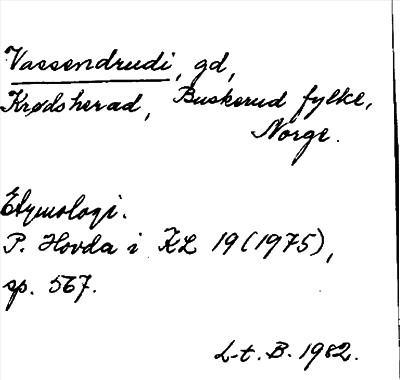 Vassendrudi, gd,
Krødsherad, Buskerud fylke,
Norge.
Etymologi.
P. Hovda i KL 19 (1975),
sp. 567.
L-t. B. 1982.